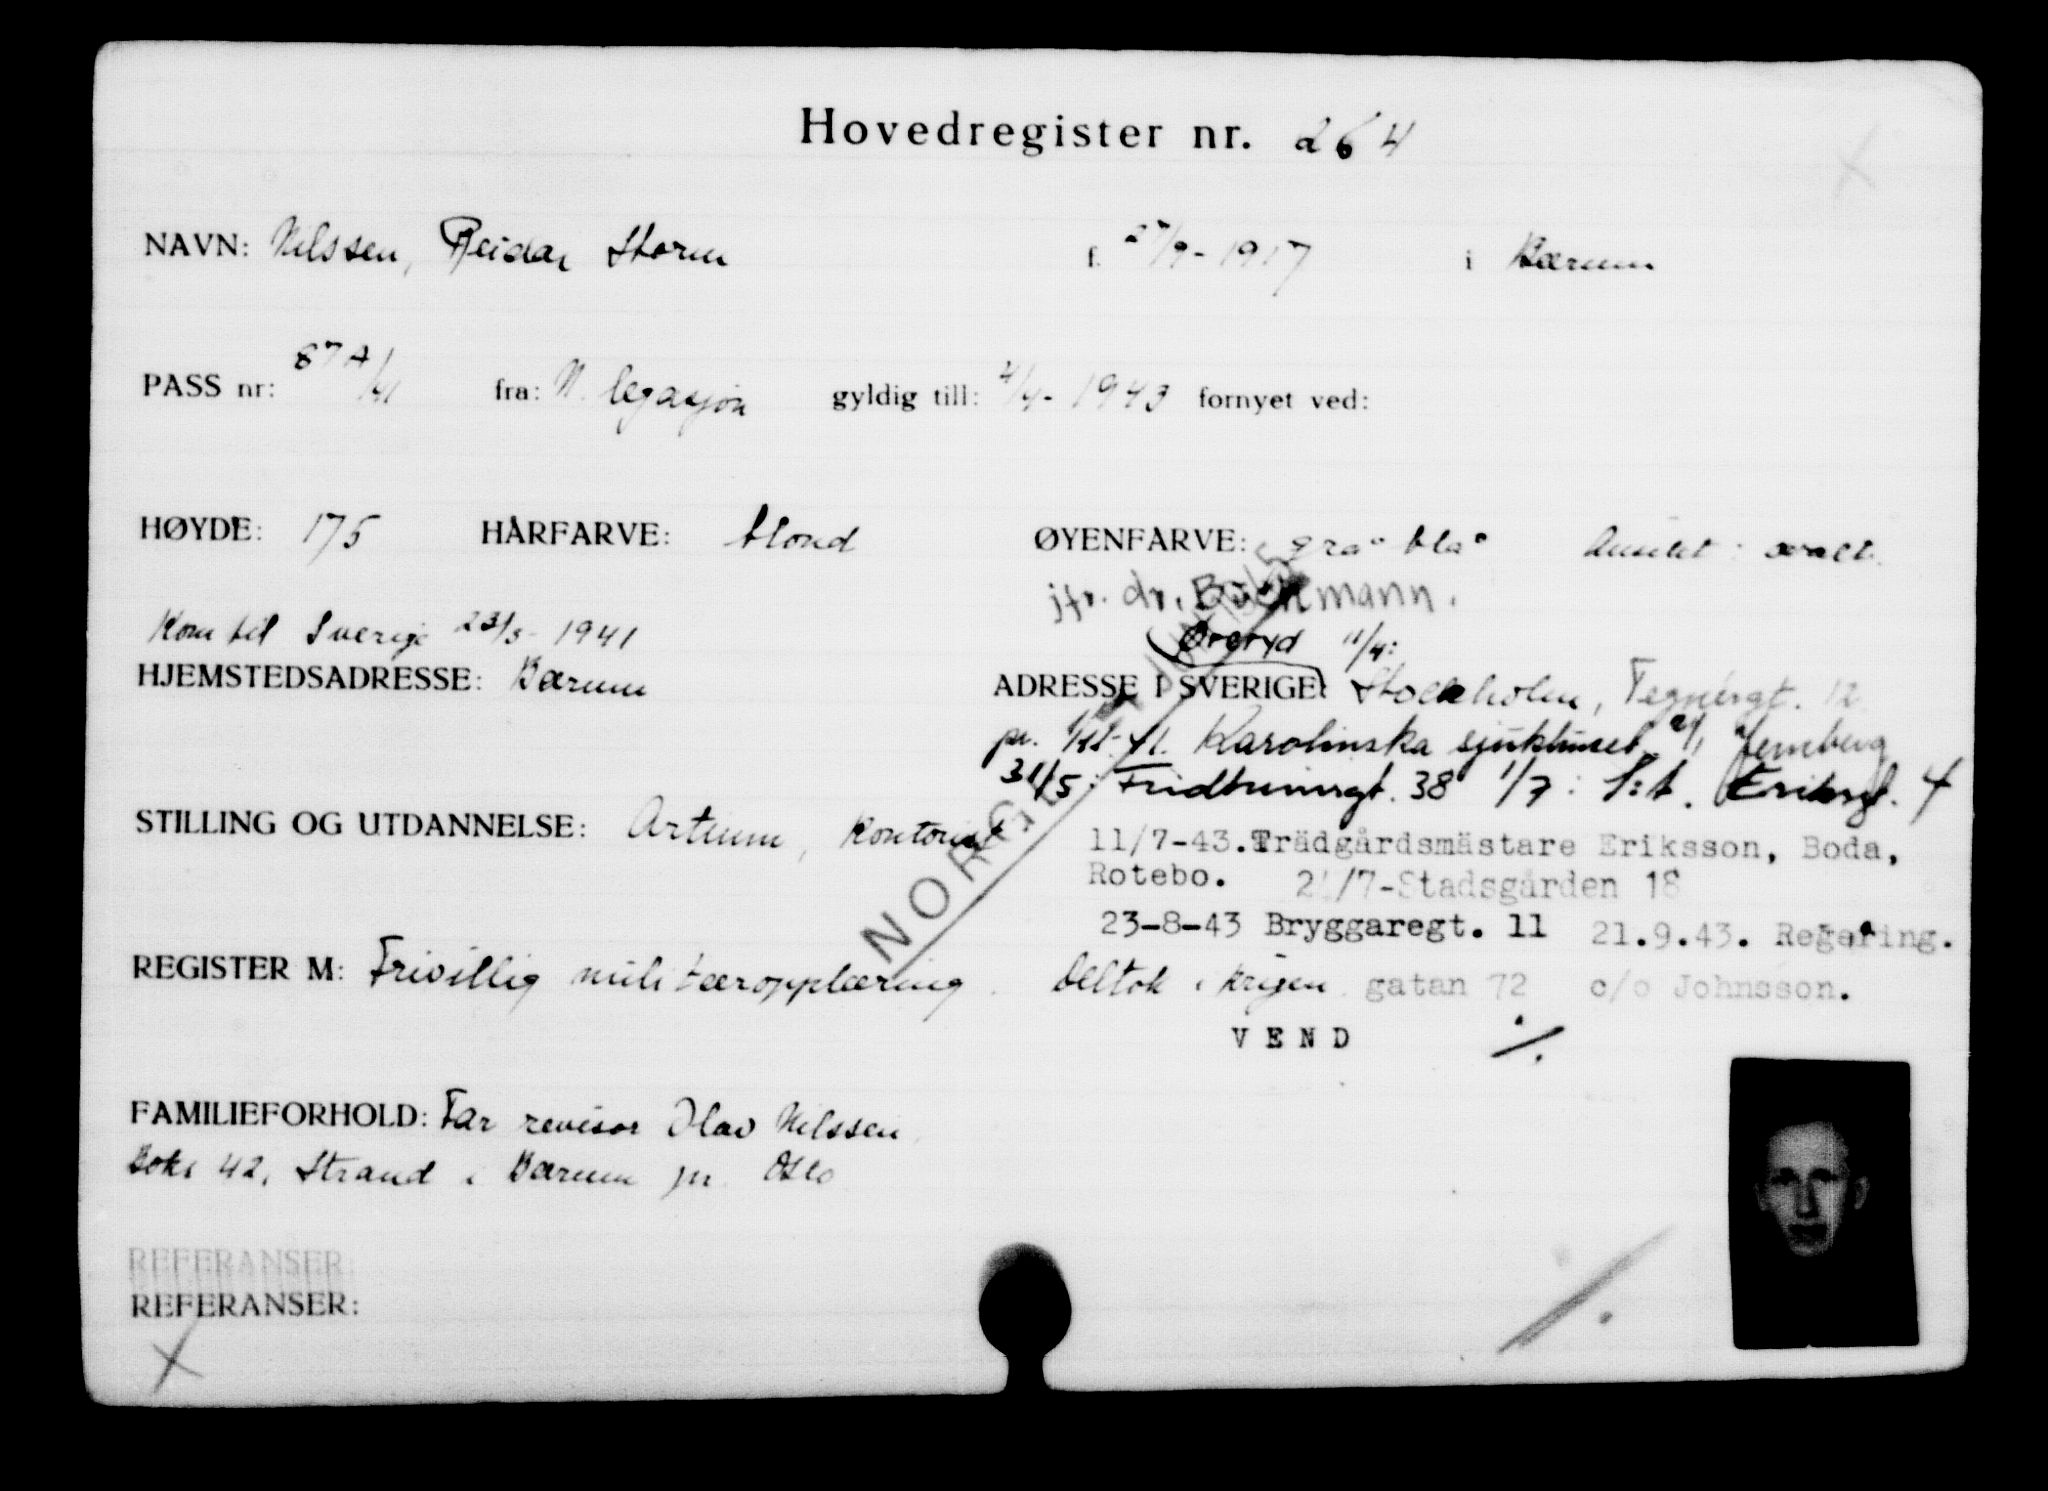 Hovedregister nr. 264
NAVN: Nilssen, Reidar Storm f. 27/9-1917 i Bærum
PASS nr: 87A/41 fra: N. legasjon gyldig till: 4/4-1943 fornyet ved:
HØYDE: 175 HÅRFARVE: blond ØYENFARVE: grå blå Ansikt: ovalt.
jfr. dr. mann.
Kom til Sverige 23/3-1941 (Øreryd 11/4:
HJEMSTEDSADRESSE: Bærum ADRESSE I SVERIGE: Stockholm, Tegnérgt. 12
pr. Karolinska sjukhuset
31/5: Fridhemsgt. 38 1/7: S:t. Eriksgt. 4
STILLING OG UTDANNELSE: Artium, kontorist
11/7-43. Trädgårdsmästare Eriksson, Boda,
Rotebo. /7-Stadsgården 18
NORGE
23-8-43 Bryggaregt. 11 21.9.43. Regering.
REGISTER M: Frivillig militæropplæring. Deltok i krigen. gatan 72 c/o Johnsson.
VEND ./.
FAMILIEFORHOLD: Far revisor Olav Nilssen,
Boks 42, Strand i Bærum pr. Oslo
REFERANSER:
REFERANSER: